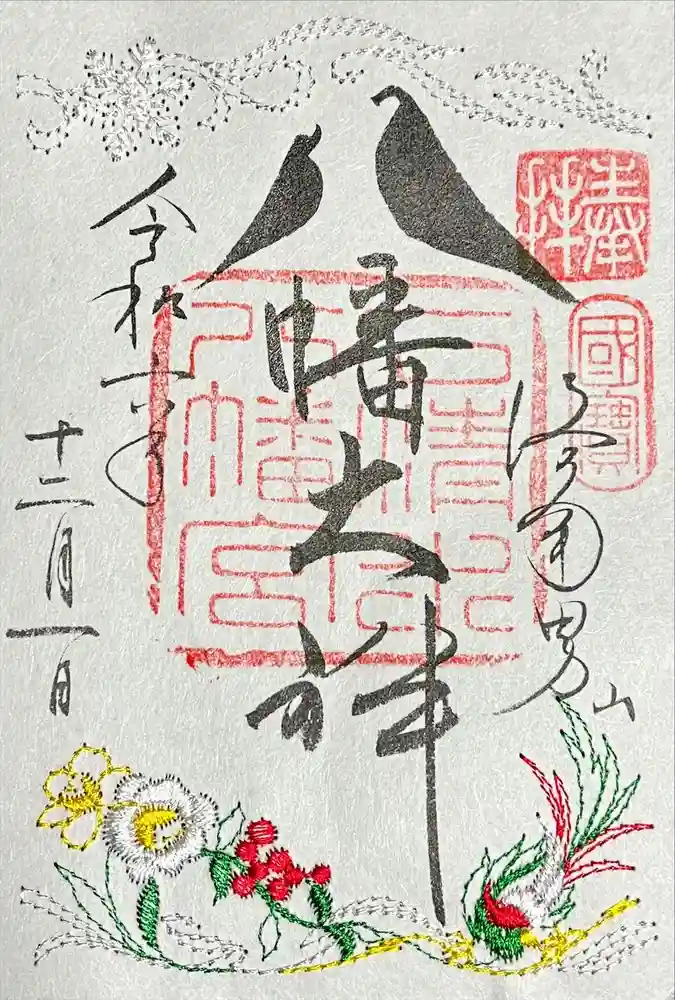 奉拜
國寶
洛南男山
八幡大神
石清水
八幡宮
令和六年
十二月一日